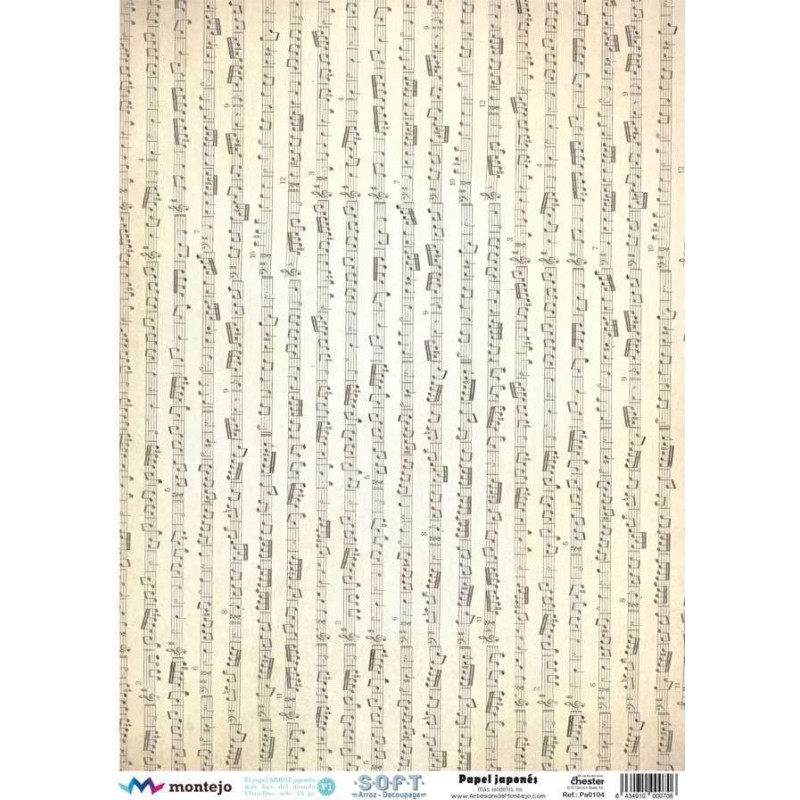 montejo
El papel ARROZ japonés
más fino del mundo
Ultra-fino, sólo 15 gr.
nº1
SOFT
Arroz - Decoupage
Papel japonés
Más modelos en
www.ArtesaniasMontejo.com
chester
Ref.: Pa0104
8 434910 000706